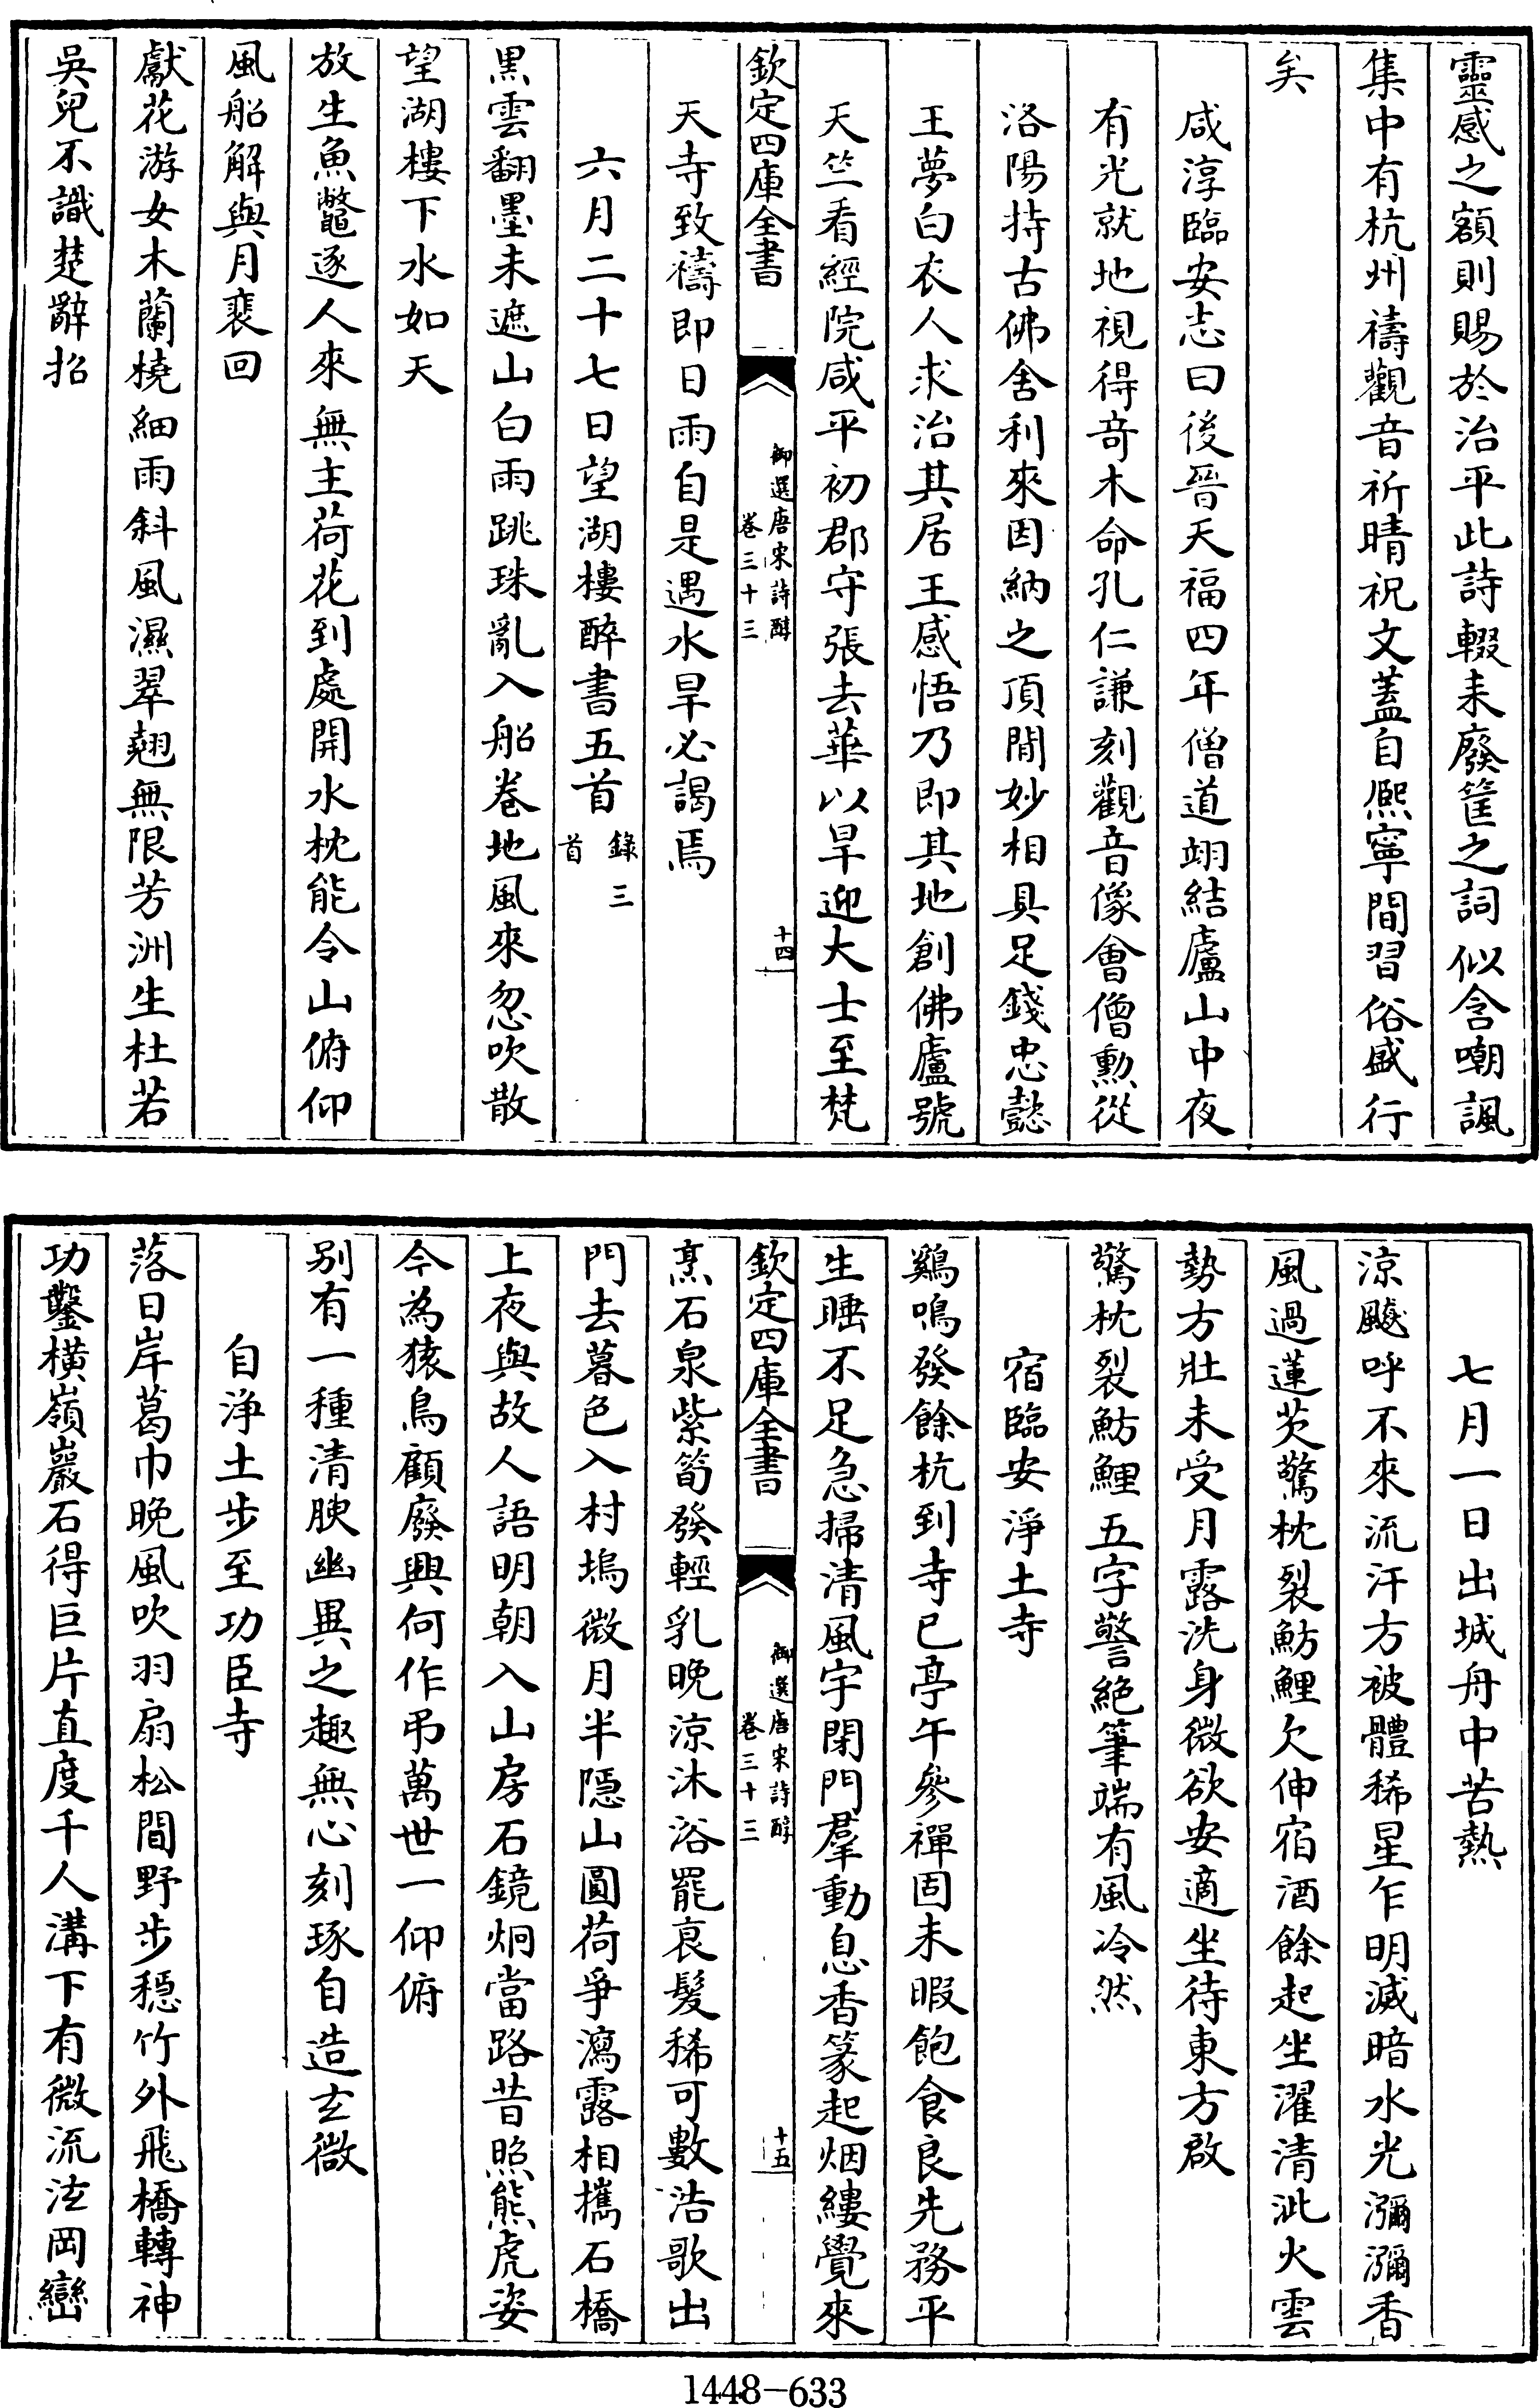 靈感之額則賜於治平此詩輟耒廢筐之詞似含嘲諷
集中有杭州禱觀音祈晴祝文蓋自熈寧間習俗盛行
矣
咸淳臨安志曰後晉天福四年僧道翊結廬山中夜
有光就地視得奇木命孔仁謙刻觀音像會僧勲從
洛陽持古佛舍利來因納之頂間妙相具足錢忠懿
王夢白衣人求治其居王感悟乃即其地創佛廬號
天竺看經院咸平初郡守張去華以旱迎大士至梵
欽定四庫全書
御選唐宋詩醇
卷三十三
十四
天寺致禱即日雨自是遇水旱必謁焉
六月二十七日望湖樓醉書五首錄三首
黒雲翻墨未遮山白雨跳珠亂入船卷地風來忽吹散
望湖樓下水如天
放生魚鼈逐人來無主荷花到處開水枕能令山俯仰
風船解與月裴回
獻花游女木蘭橈細雨斜風濕翠翹無限芳洲生杜若
吳兒不識楚辭招
七月一日出城舟中苦熱
涼飈呼不來流汗方被體稀星乍明滅暗水光瀰瀰香
風過蓮芡驚枕裂魴鯉欠伸宿酒餘起坐濯清泚火雲
勢方壯未受月露洗身微欲安適坐待東方啟
驚枕裂魴鯉五字警絶筆端有風冷然
宿臨安淨土寺
鷄鳴發餘杭到寺已亭午參禪固未暇飽食良先務平
生睡不足急掃清風宇閉門羣動息香篆起烟縷覺來
欽定四庫全書
御選唐宋詩醇
卷三十三
十五
烹石泉紫筍發輕乳晚涼沐浴罷衰髮稀可數浩歌出
門去暮色入村塢微月半隱山圓荷爭瀉露相攜石橋
上夜與故人語明朝入山房石鏡炯當路昔照熊虎姿
今為猿鳥顧廢興何作弔萬世一仰俯
别有一種清腴幽異之趣無心刻琢自造玄微
自浄土步至功臣寺
落日岸葛巾晚風吹羽扇松間野步穩竹外飛橋轉神
功鑿橫嶺巖石得巨片直度千人溝下有微流泫岡巒
1448-633